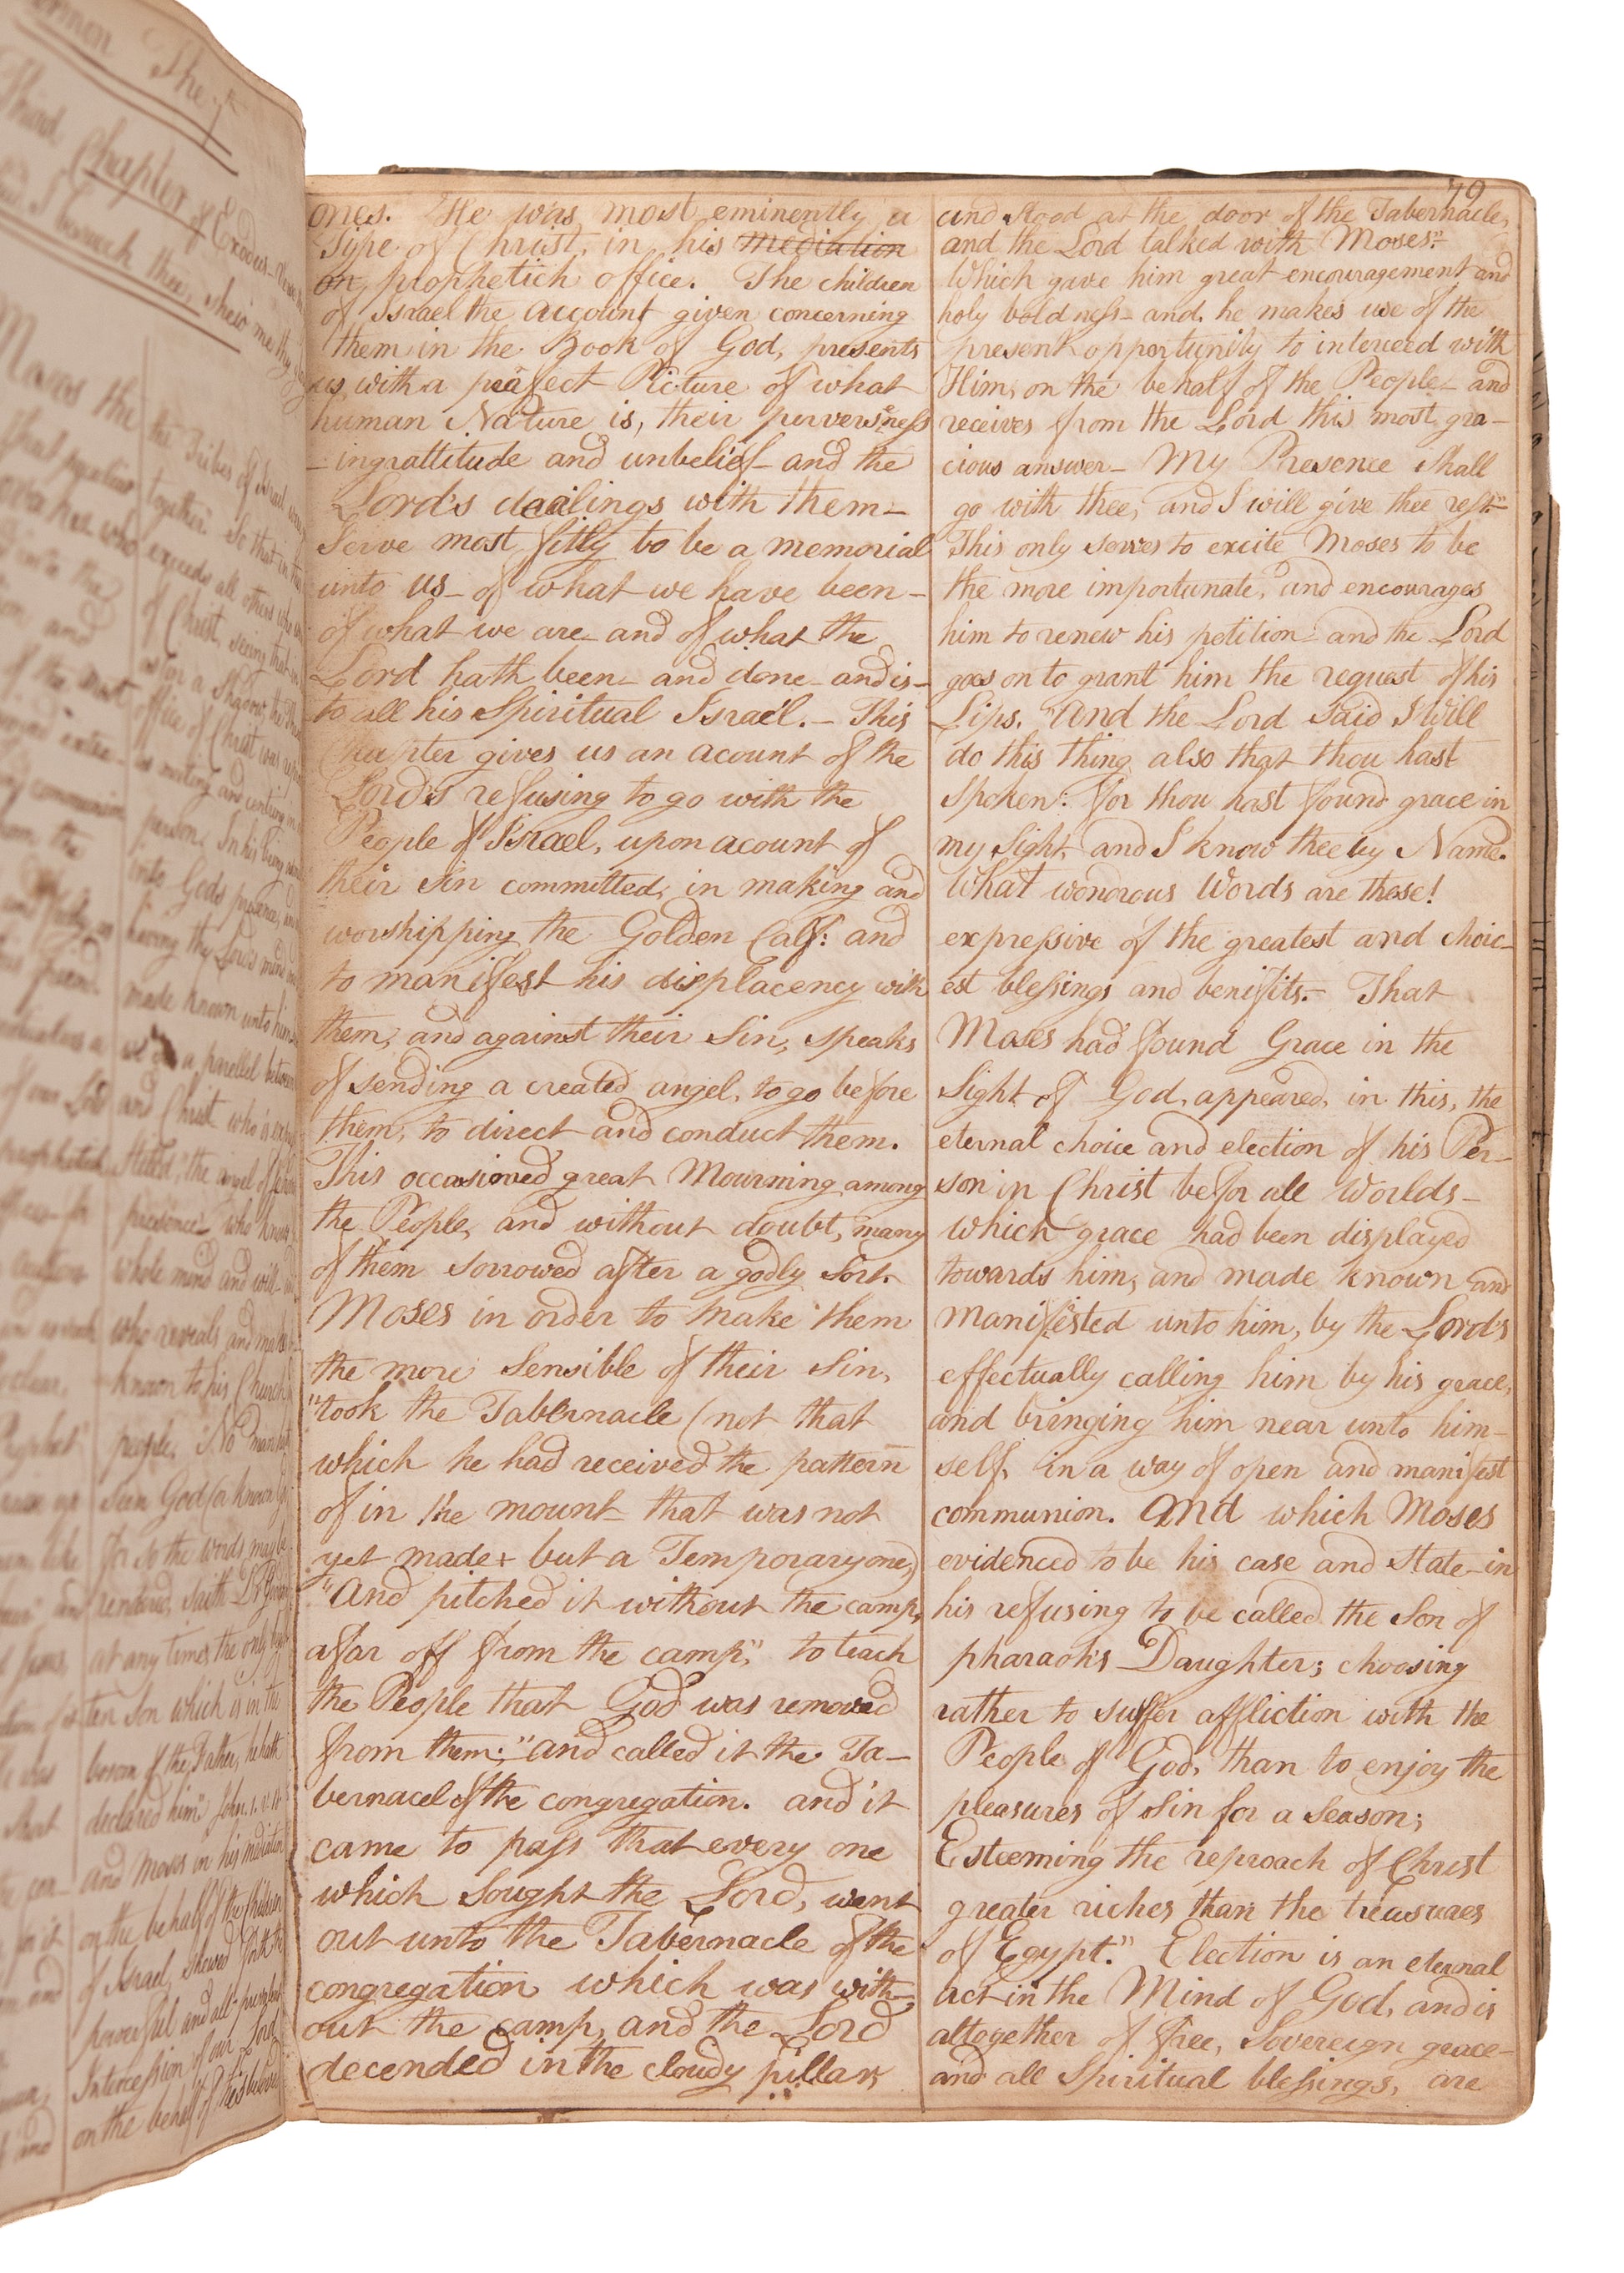 Sermon The 1st
Third Chapter of Exodus
I beseech thee, shew me thy
the Tribes of Israel
together. So that in
exceeds all others who
of Christ, seeing that
as for a Shadow, the
office of Christ was
in meeting and centring in
person. In his being
into God's presence, and
having the Lord's mind
made known unto him
a parellel between
and Christ who is
stiled, "the angel of
presence, who knows
whole mind and will
who reveals and makes
known to his Church
people. "No man hath
seen God (or known God
for so the words may be
rendered, saith Dr
at any time, the only begot
ten Son which is in the
bosom of the Father, he hath
declared him." John. 1. v. 18
and Moses in his mediation
on the behalf of the Children
of Israel, shewed forth the
powerful and all-prevalent
Intercession of our Lord
on the behalf of his beloved
79
ones. He was most eminently a
Type of Christ, in his mediation
or prophetick office. The children
of Israel the account given concerning
them in the Book of God, presents
us with a perfect Picture of what
human Nature is, their perversness
- ingrattitude and unbelief - and the
Lord's dealings with them -
Serve most fitly to be a memorial
unto us - of what we have been -
of what we are - and of what the
Lord hath been - and done - and is -
to all his Spiritual Israel. - This
Chapter gives us an acount of the
Lord's refusing to go with the
People of Israel, upon acount of
their Sin committed, in making and
worshipping the Golden Calf: and
to manifest his displacency with
them, and against their Sin, speaks
of sending a created angel, to go before
them, to direct and conduct them.
This occasioned great Mourning among
the People, and without doubt, many
of them sorrowed after a godly sort.
Moses in order to make them
the more Sensible of their Sin,
"took the Tabernacle (not that
which he had received the pattern
of in the mount - that was not
yet made + but a Temporary one,)
"And pitched it without the camp,
afar off from the camp," to teach
the People that God was removed
from them: "and called it the Ta-
bernacel of the congregation. and it
came to pass that every one
which sought the Lord, went
out unto the Tabernacle of the
congregation which was with-
out the camp, and the Lord
decended in the cloudy pillar,
and stood at the door of the Tabernacle,
and the Lord talked with Moses."
Which gave him great encouragement and
holy boldness - and he makes use of the
present opportunity to interceed with
Him, on the behalf of the People - and
receives from the Lord this most gra-
cious answer - My Presence shall
go with thee, and I will give thee rest."
This only serves to excite Moses to be
the more importunate, and encourages
him to renew his petition - and the Lord
goes on to grant him the request of his
Lips. "And the Lord said I will
do this thing also that thou hast
Spoken: for thou hast found grace in
my Sight, and I know thee by Name.
What wondrous Words are these!
expressive of the greatest and choic-
est blessings and benifits. - That
Moses had found Grace in the
Sight of God, appeared, in this, the
eternal choice and election of his Per-
son in Christ befor all Worlds -
which grace had been displayed
towards him, and made known and
manifested unto him, by the Lord's
effectually calling him by his grace,
and bringing him near unto him-
self, in a way of open and manifest
communion. And which Moses
evidenced to be his case and State - in
his refusing to be called the Son of
pharaoh's Daughter; choosing
rather to suffer affliction with the
People of God, than to enjoy the
pleasures of Sin for a Season;
Esteeming the reproach of Christ
greater riches than the treasures
of Egypt." Election is an eternal
act in the Mind of God, and is
altogether of free, Sovereign grace -
and all Spiritual blessings, are